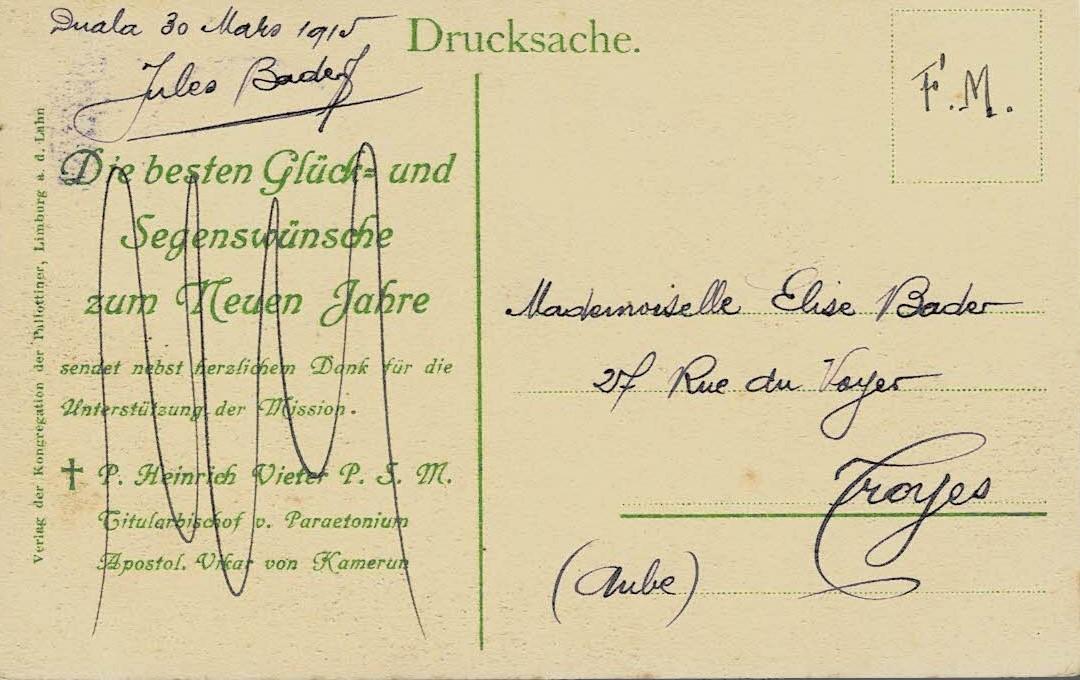 Duala 30 Mars 1915
Jules Bader
Drucksache.
F.M.
Die besten Glück= und
Segenswünsche
zum Neuen Jahre
sendet nebst herzlichem Dank für die
Unterstützung der Mission.
✝ P. Heinrich Vieter P. S. M.
Titularbischof v. Paraetonium
Apostol. Vikar von Kamerun
Verlag der Kongregation der Pallottiner, Limburg a. d. Lahn
Mademoiselle Elise Bader
27 Rue du Voyer
Troyes
(Aube)